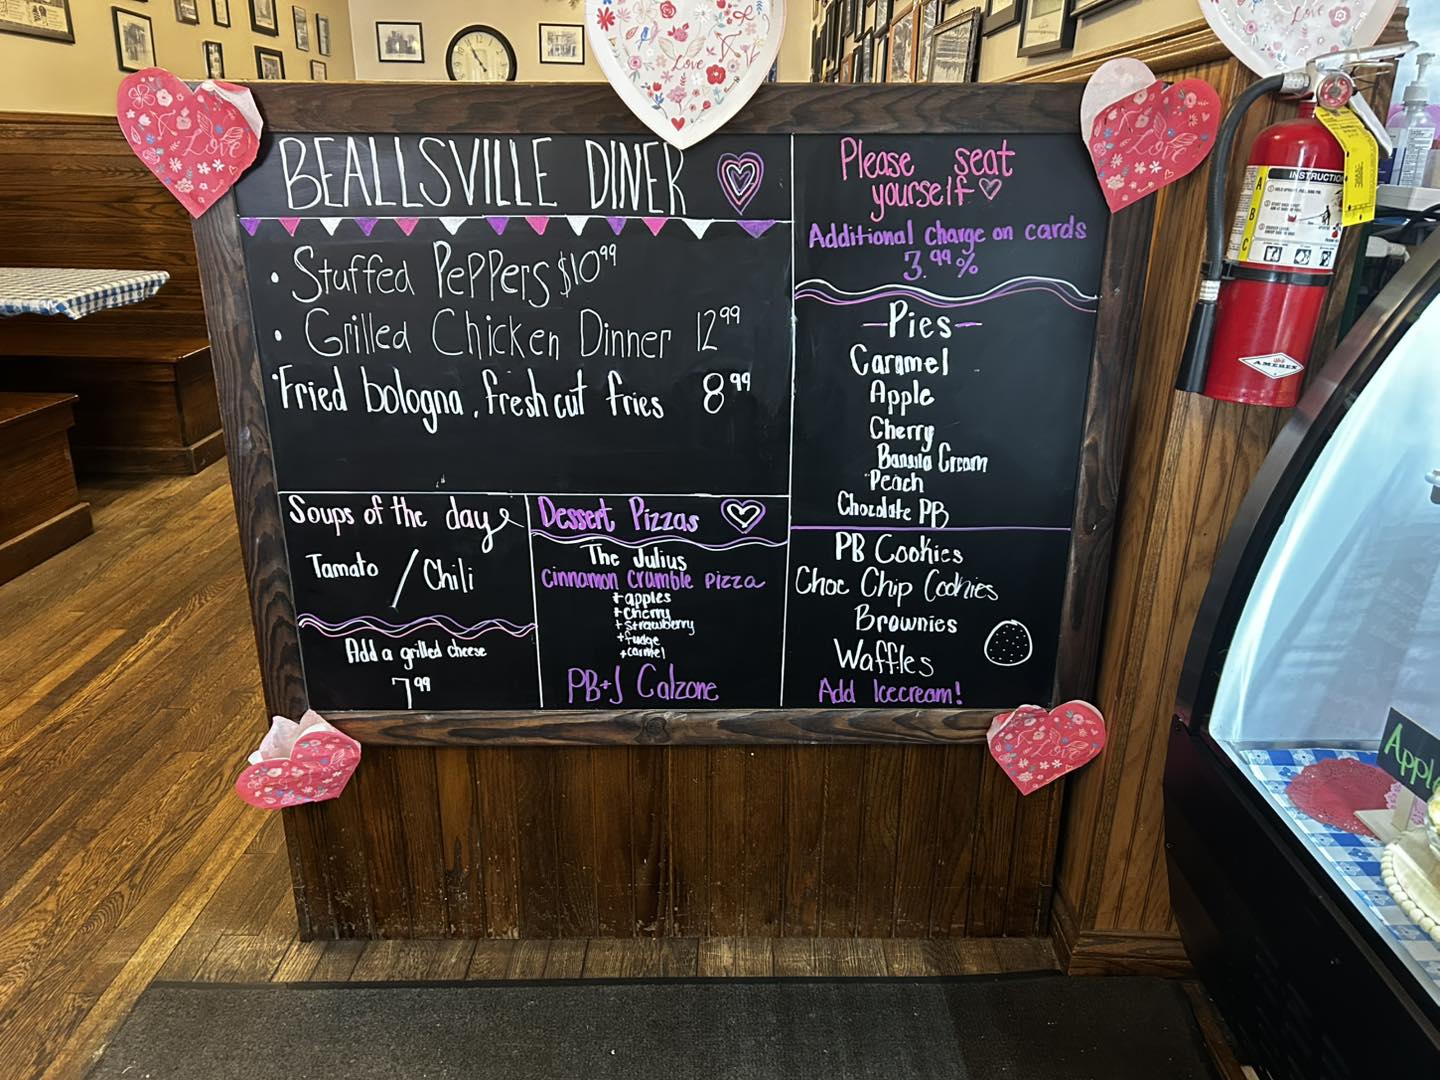 BEALLSVILLE DINER
• Stuffed Peppers $10.99
• Grilled Chicken Dinner 12.99
• Fried bologna, fresh cut fries 8.99
Soups of the day
Tamato / Chili
Add a grilled cheese
7.99
Dessert Pizzas
The Julius
Cinnamon crumble pizza
+apples
+cherry
+strawberry
+fudge
+carmel
PB+J Calzone
Please seat
yourself
Additional charge on cards
3.99%
-Pies-
Caramel
Apple
Cherry
Cream
Peach
Chocolate PB
PB Cookies
Choc Chip Cookies
Brownies
Waffles
Add Icecream!
Love
Love
Love
INSTRUCTIO
A
B
C
AMEREX
Apple